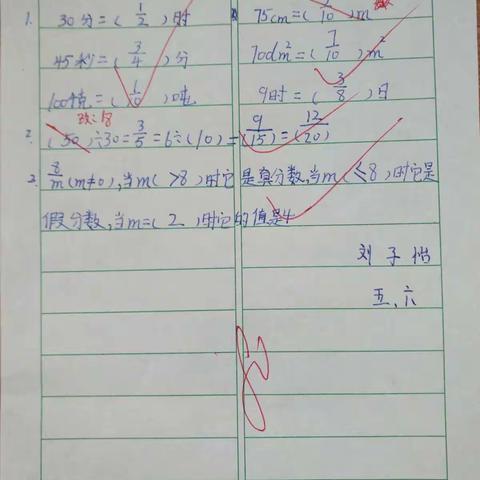 1. 30分=(1/2)时 75cm=(7/10)m
45秒=(3/4)分 70dm²=(7/10)m²
100千克=(1/10)吨 9时=(3/8)日
改:18
2. (50)÷30=3/5=6÷(10)=9/(15)=(12/20)
3. 8/m(m≠0),当m(>8)时它是真分数,当m(≤8)时它是
假分数,当m=(2)时它的值是4
刘子怡
五、六